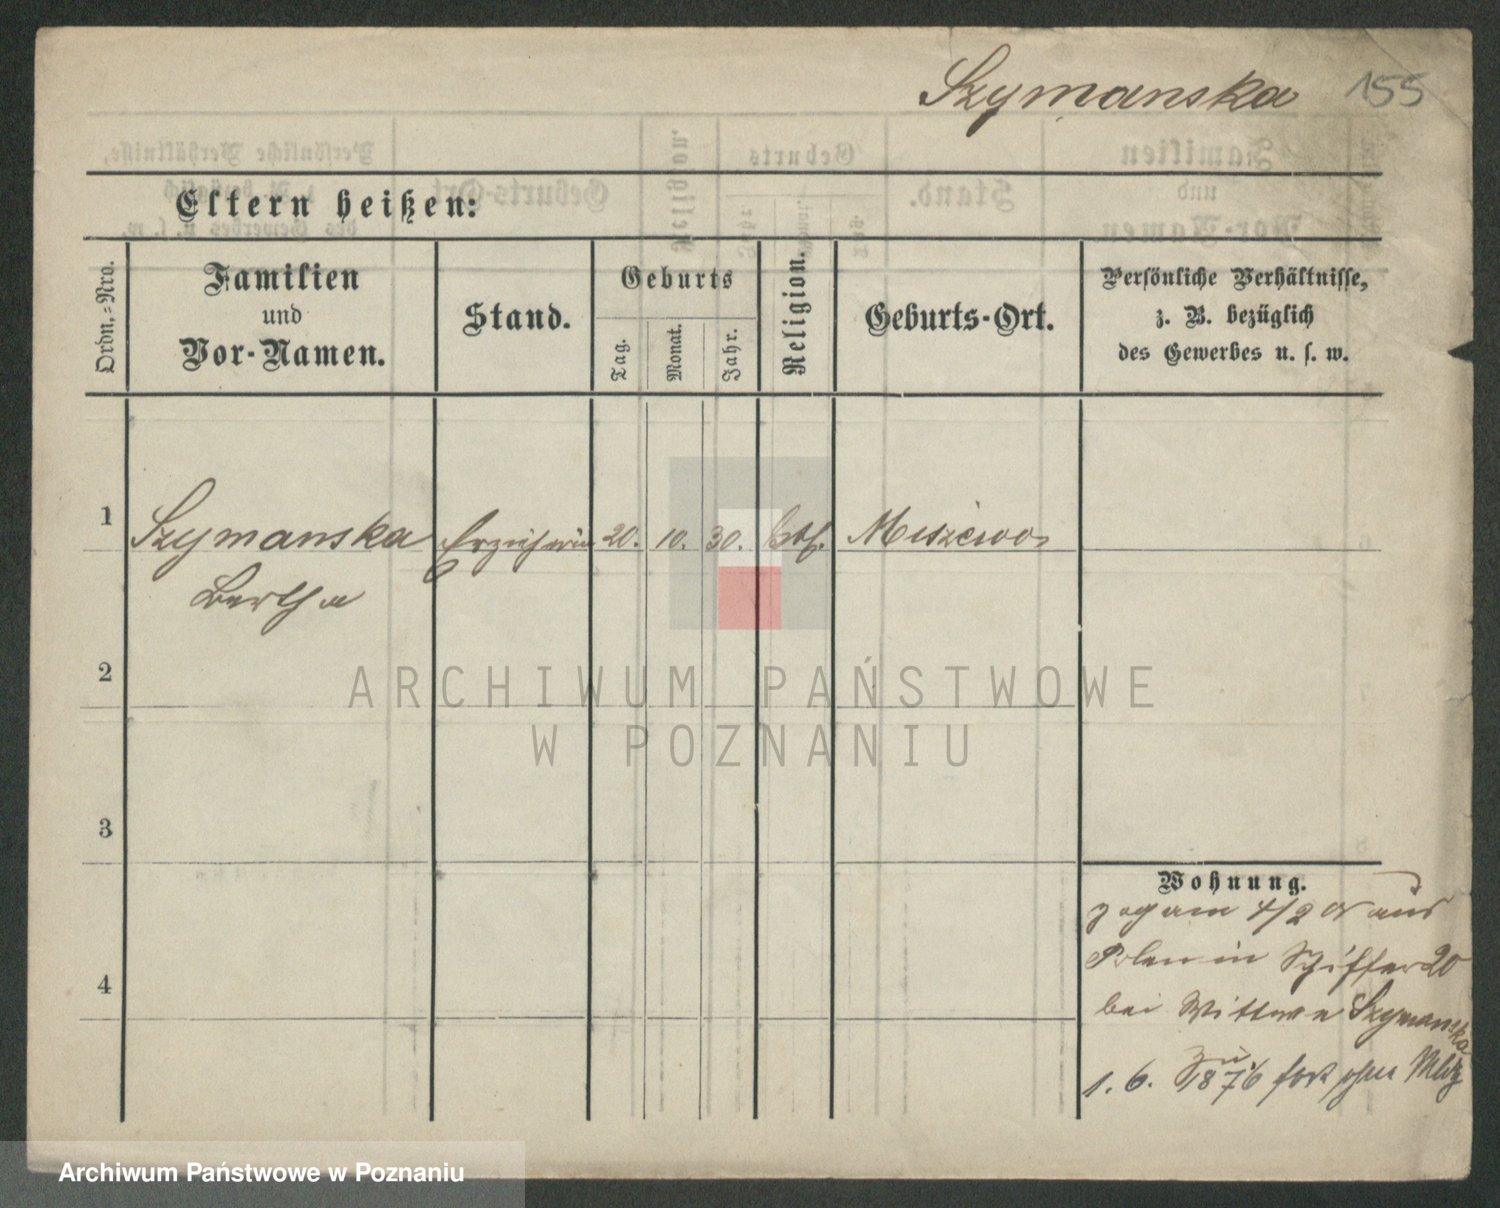 Szymanska 155
Eltern heißen:
Ordn.-Nro.
Familien
und
Vor-Namen.
Stand.
Geburts
Tag.
Monat.
Jahr.
Religion.
Geburts-Ort.
Persönliche Verhältnisse,
z. B. bezüglich
des Gewerbes u. s. w.
1 Szymanska Erzieherin 20. 10. 30. kth.
Bertha
2
ARCHIWUM PAŃSTWOWE
W POZNANIU
3
Wohnung.
zog am 4/2 aus
Polen in Schiffer 20
4
bei Wittwe Szymanska
1. 6. 1876 fort ohne
Archiwum Państwowe w Poznaniu